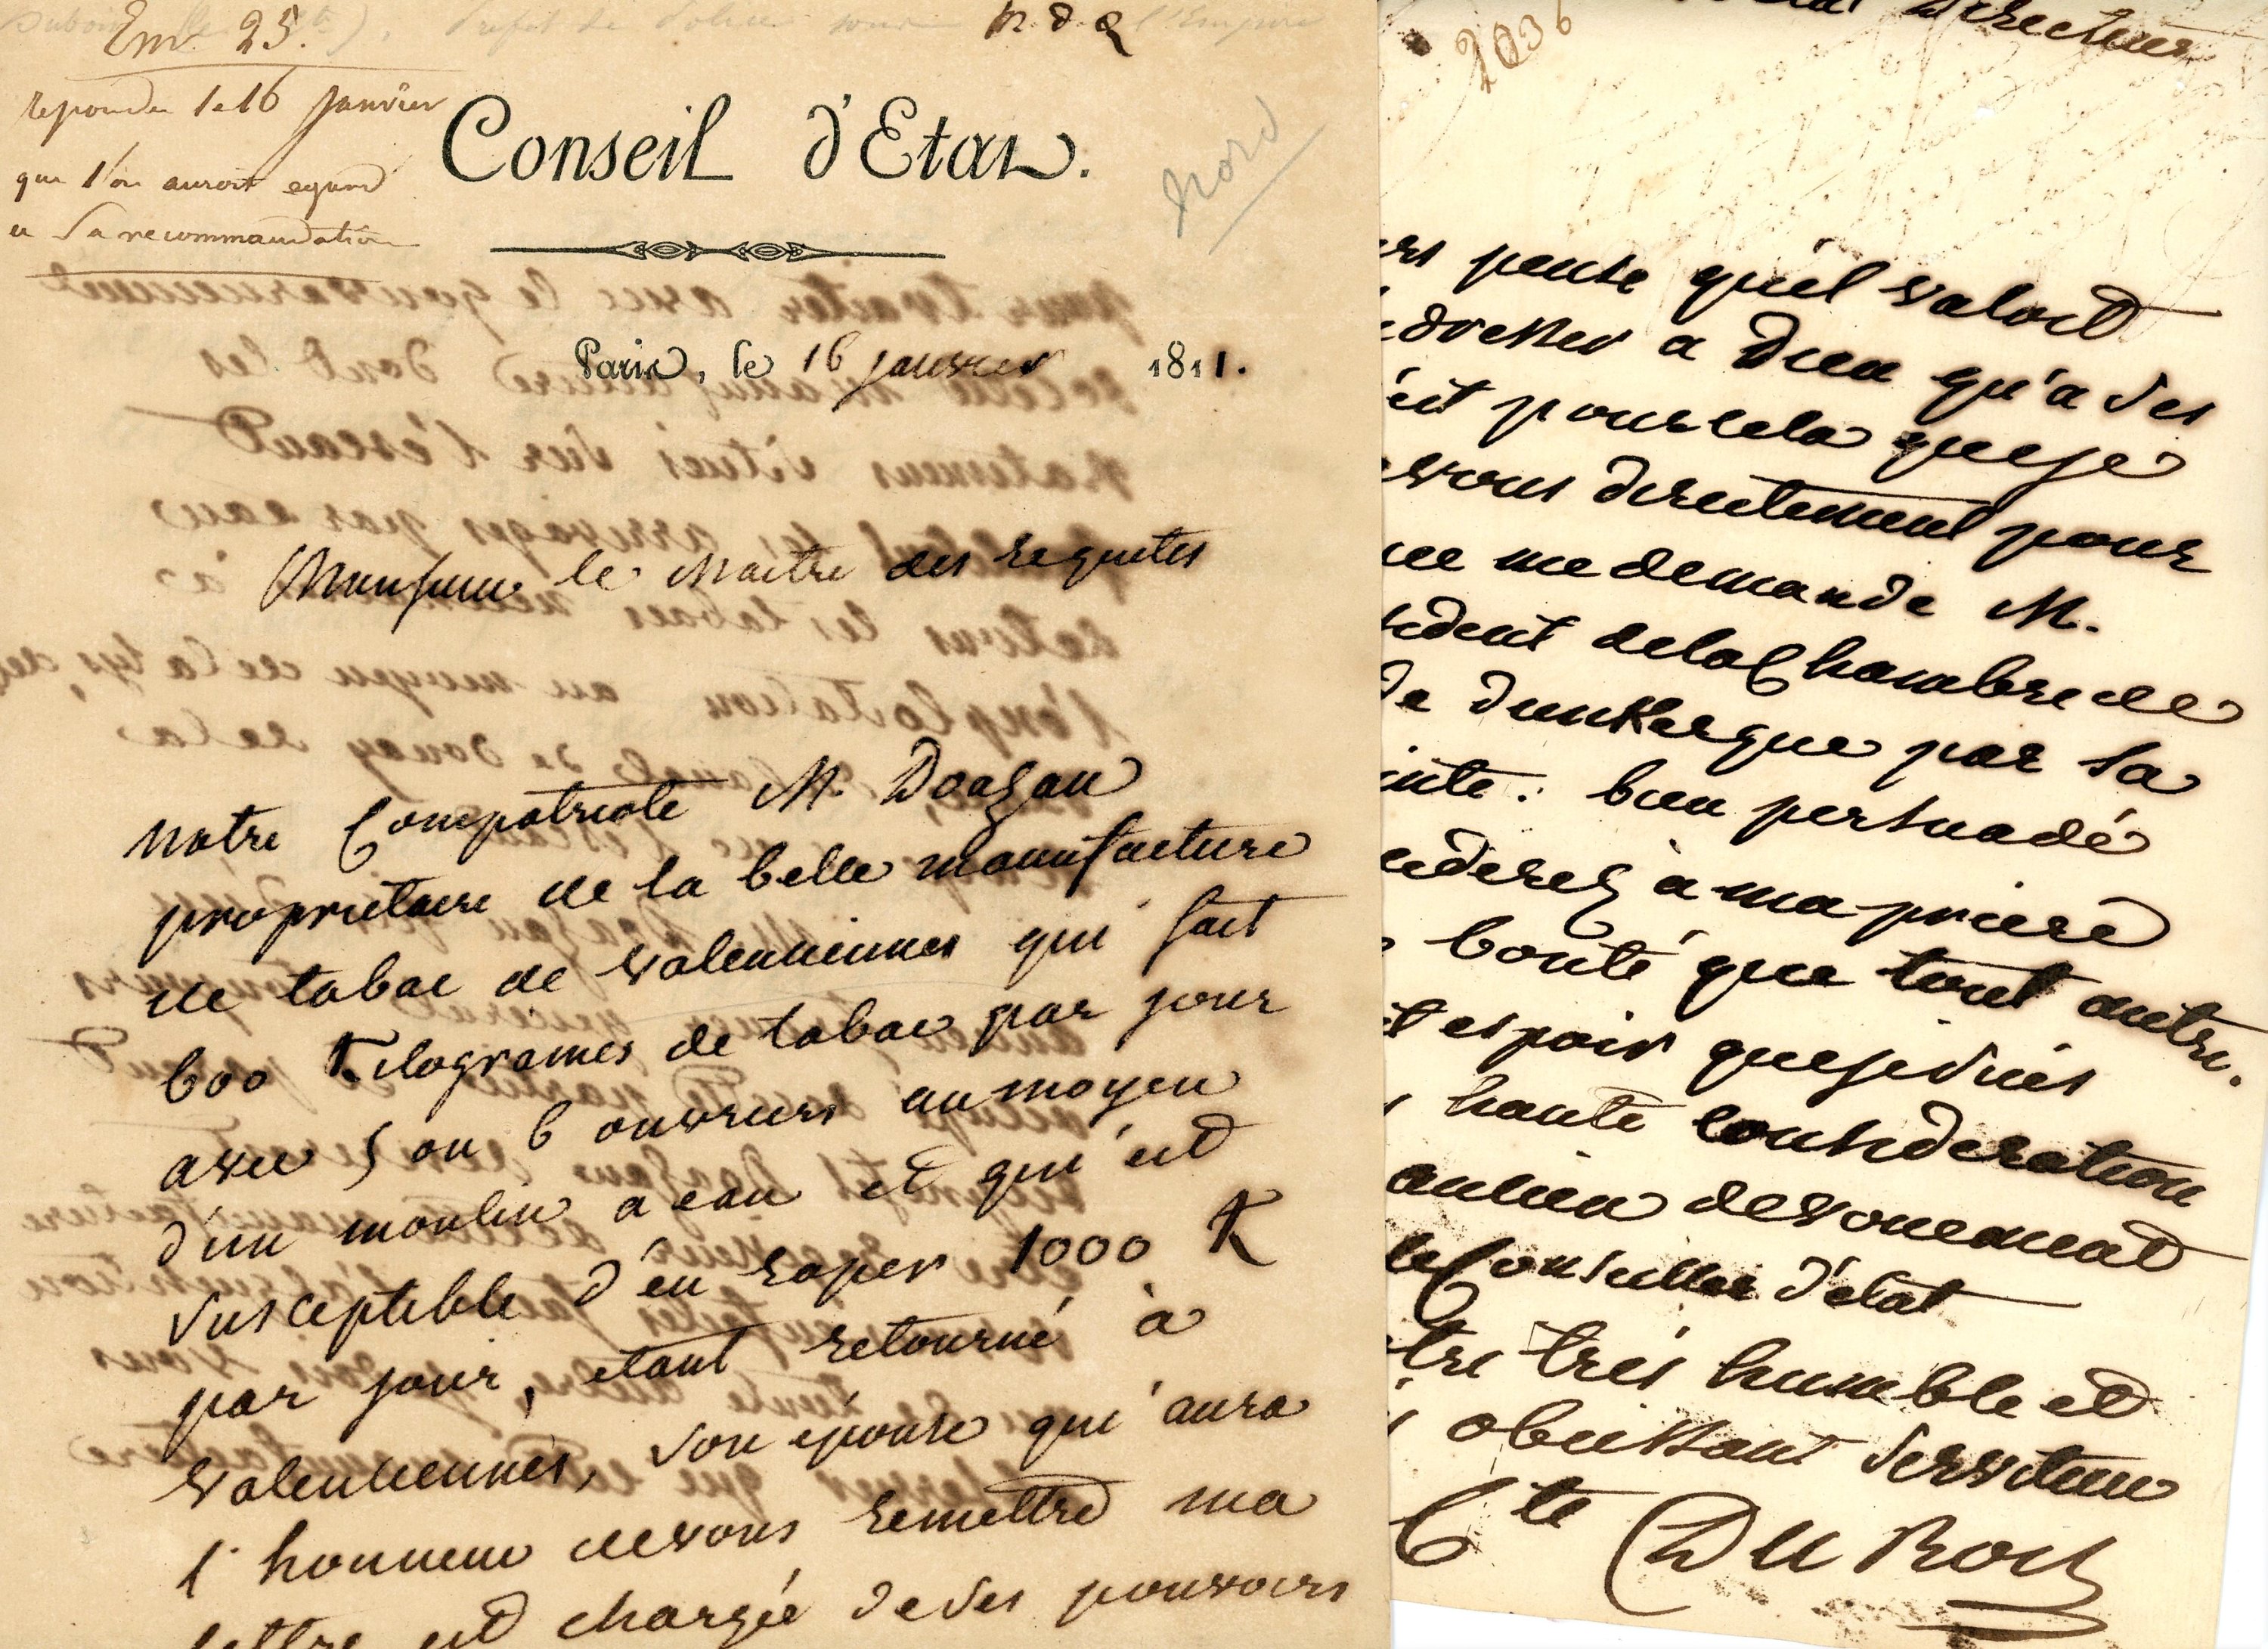 Em. 25.
repondu le 16 janvier
que l'on auroit egard
a sa recommandation
Conseil d'Etat.
Nord
Paris, le 16 janvier 1811.
Monsieur le Maitre des requetes
notre Compatriote M. Doazan
proprietaire de la belle manufacture
de tabac de valenciennes qui fait
600 Kilogrames de tabac par jour
avec 5 ou 6 ouvriers au moyen
d'un moulin a eau et qui est
susceptible d'en raper 1000 K
par jour, etant retourné à
valenciennes, son épouse qui aura
l'honneur de vous remettre ma
lettre est chargée de ses pouvoirs
2036
Directeur
pensé qu'il valoit
adresser a Dieu qu'a ses
pour cela que je
vous directement pour
me demande M.
de la Chambre de
de dunkerque par sa
bien persuadé
à ma priere
bonté que tout autre.
espoir que je suis
haute consideration
ancien devouement
le Conseiller d'état
très humble et
obeissant serviteur
Cte Du Bois